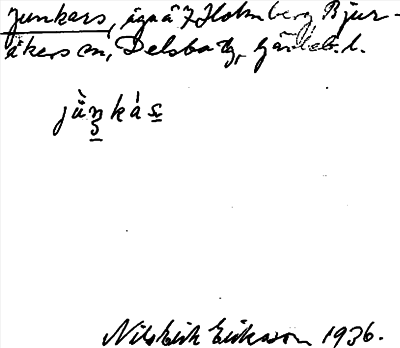 Junkers, ägoå 7 Holmberg, Bjur-
åkers sn, Delsbo tg, Gävleb. l.
jùŋkás
Nils Erik Eriksson 1936.